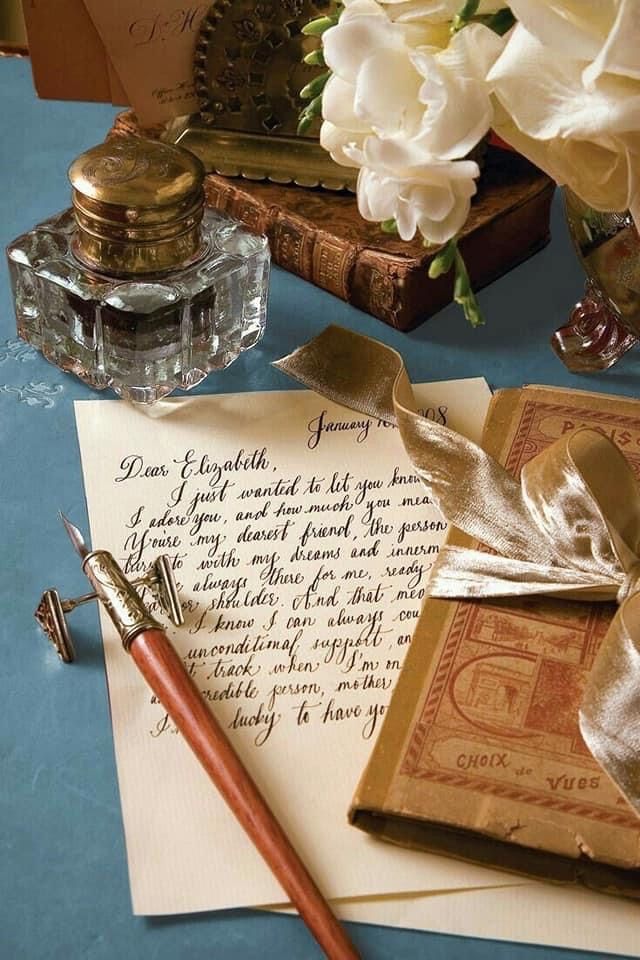 Dr. H
Office H
January
08
Dear Elizabeth,
I just wanted to let you know
I adore you, and how much you mea
You're my dearest friend, the person
to with my dreams and innerm
always there for me, ready
or shoulder. And that mea
I know I can always cou
unconditional support, an
track when I'm on
credible person, mother
lucky to have yo
PARIS
CHOIX
de
VUES